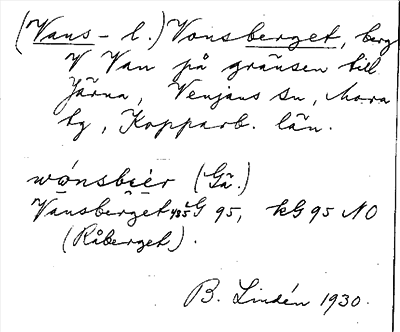 (Vans- l.) Vonsberget, berg
V Van på gränsen till
Järna, Venjans sn, Mora
tg, Kopparb. län.
wǫ́nsbèr (Gä.)
Vansberget 485 G 95, kG 95 NO
(Råberget).
B. Lindén 1930.